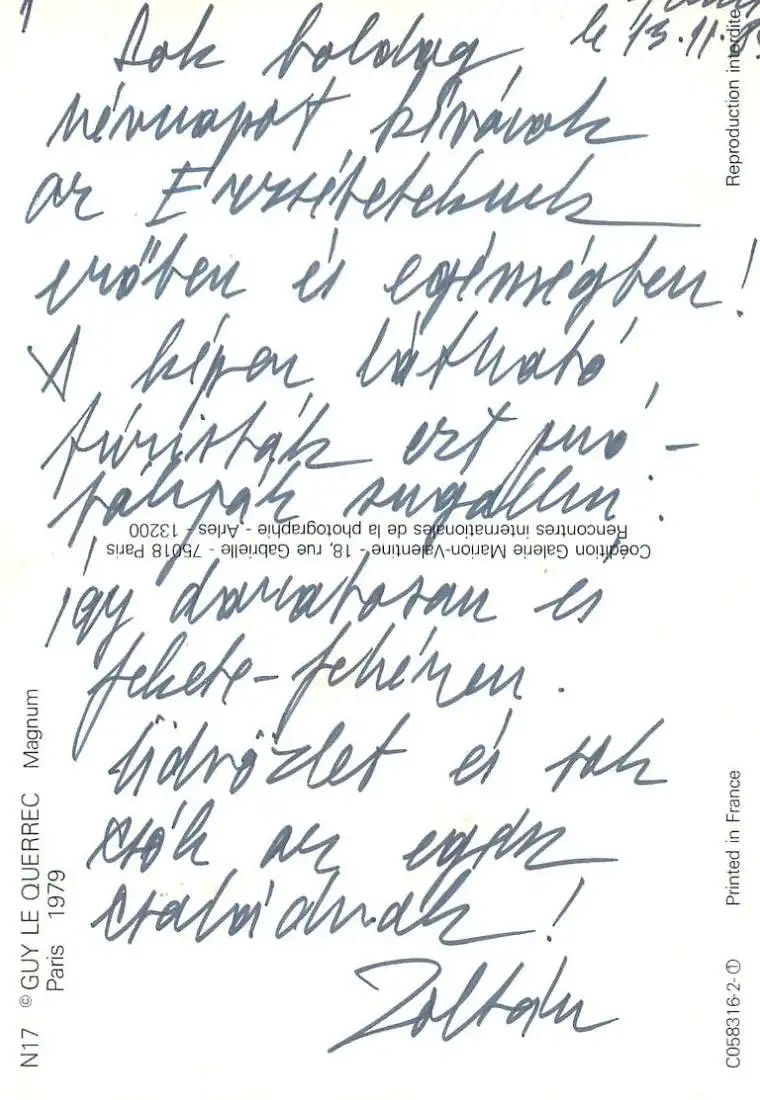 le 13.11.
Sok boldog
névnapot kívánok
az Erzsébeteknek
erőben és egészségben!
A képen látható
turisták ezt pró-
bálják sugallni:
így darabosan és
fekete-fehéren.
Üdvözlet és sok
csók az egész
családnak!
Zoltán
Coédition Galerie Marion-Valentine - 18, rue Gabrielle - 75018 Paris
Rencontres internationales de la photographie - Arles - 13200
N17 © GUY LE QUERREC Magnum
Paris 1979
Reproduction interdite
Printed in France
C058316-2-①